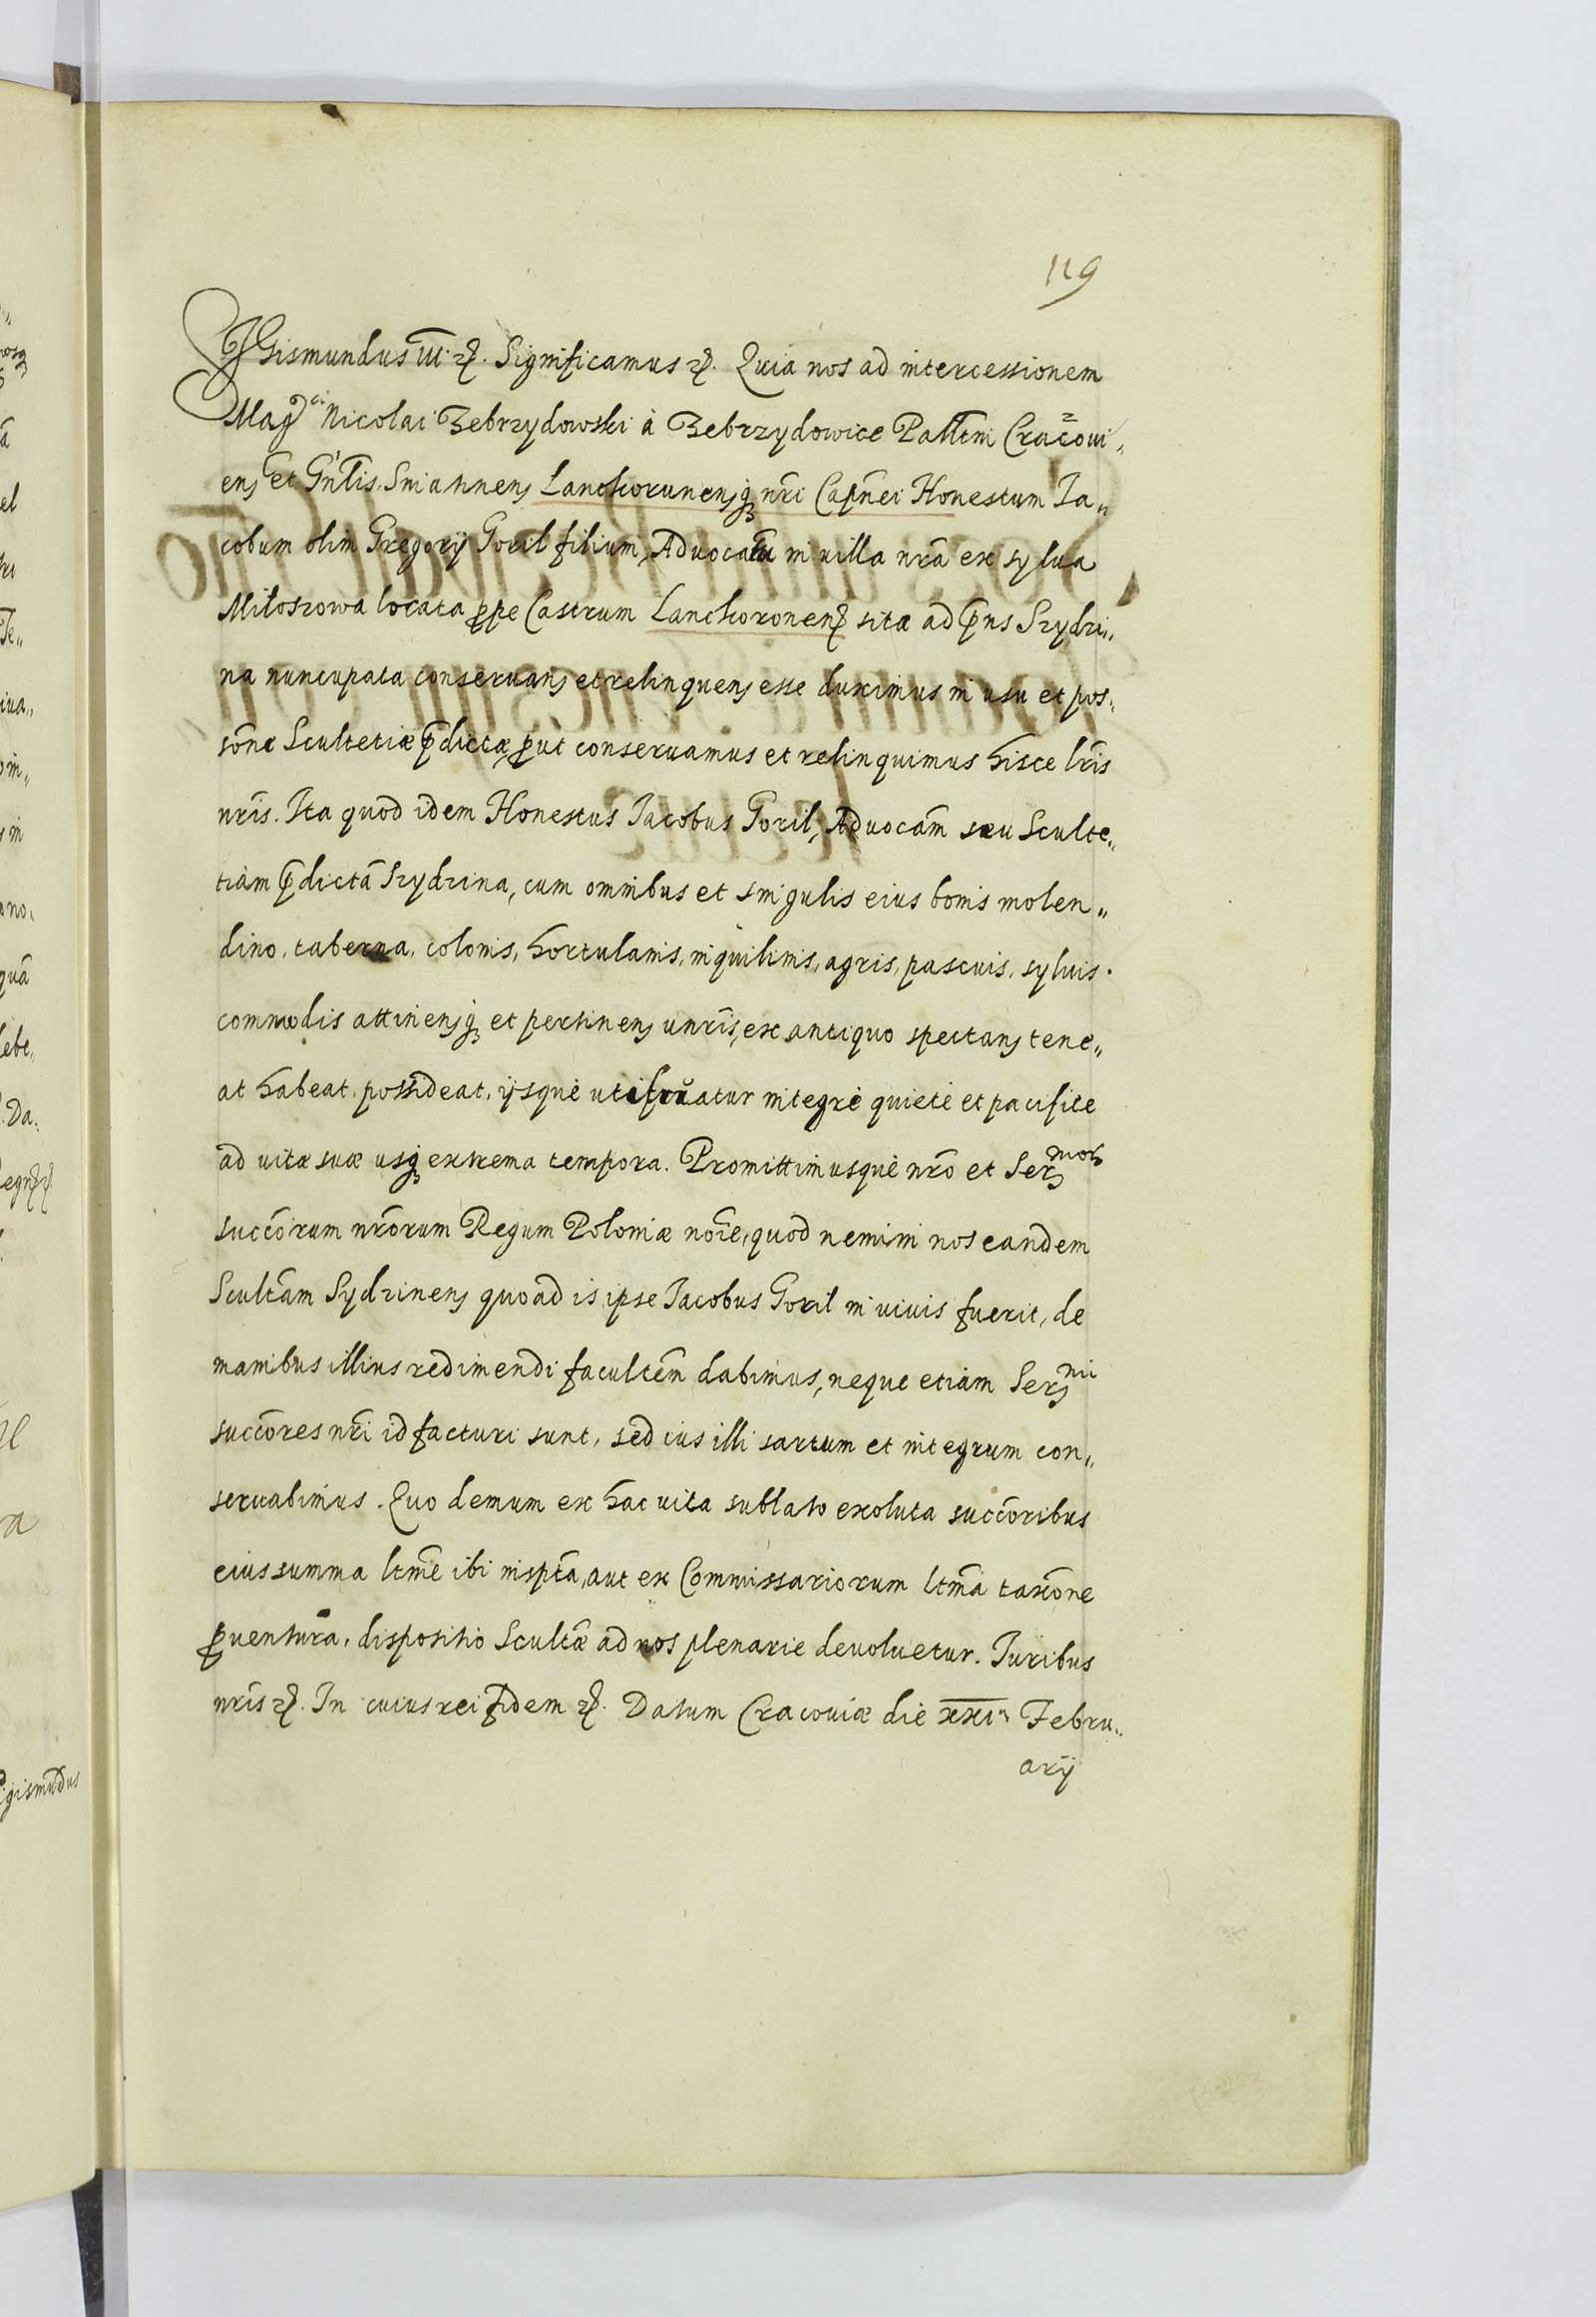 119
SIGismundus III. etc. Significamus etc. Quia nos ad intercessionem
Mag^ci Nicolai Zebrzydowski à Zebrzydowice Pallatini Cracovi„
ens et Gńlis. Sniatinens Lanckorunensq́ nr̃i Capñei Honestum Ja„
cobum olim Gregorij Goril filium, Advocatũ in villa nr̃a ex sylva
Miłoszowa locata prope Castrum Lanckoronens sitæ ad p̃ns Szydzi„
na nuncupata conseruans et relinquens esse duximus in usu et pos„
sõne Scultetiæ p̃dictæ, prout conseruamus et relinquimus hisce lr̃is
nr̃is. Ita quod idem Honestus Jacobus Goril, Advocãm seu Sculte„
tiam p̃dictã Szydzina, cum omnibus et singulis eius bonis molen„
dino, taberna, colonis, hortulanis, inquilinis, agris, pascuis, syluis.
commodis attinensq́ et pertinens unr̃is, ex antiquo spectans tene„
at habeat, possideat, ijsque utifruatur integrè quietè et pacificè
ad vitæ suæ usq́ extrema tempora. Promittimusquè nr̃o et Ser^mor
succõrum nr̃orum Regum Poloniæ nõie, quod nemini nos eandem
Scultãm Sydzinens quoad is ipse Jacobus Goril in vivis fuerit, de
manibus illius redimendi facultẽm dabimus, neque etiam Ser^mi
succõres nr̃i id facturi sunt, sed ius illi sartum et integrum con„
seruabimus. Quo demum ex hac vita sublato exoluta succõribus
eius summa ltmẽ ibi inspta, aut ex Commissariorum ltmã taxõne
prouentura, dispositio Scultæ ad nos plenarie devoluetur. Juribus
nr̃is etc. In cuius rei fidem etc. Datum Cracoviæ die XXI Febru„
arij